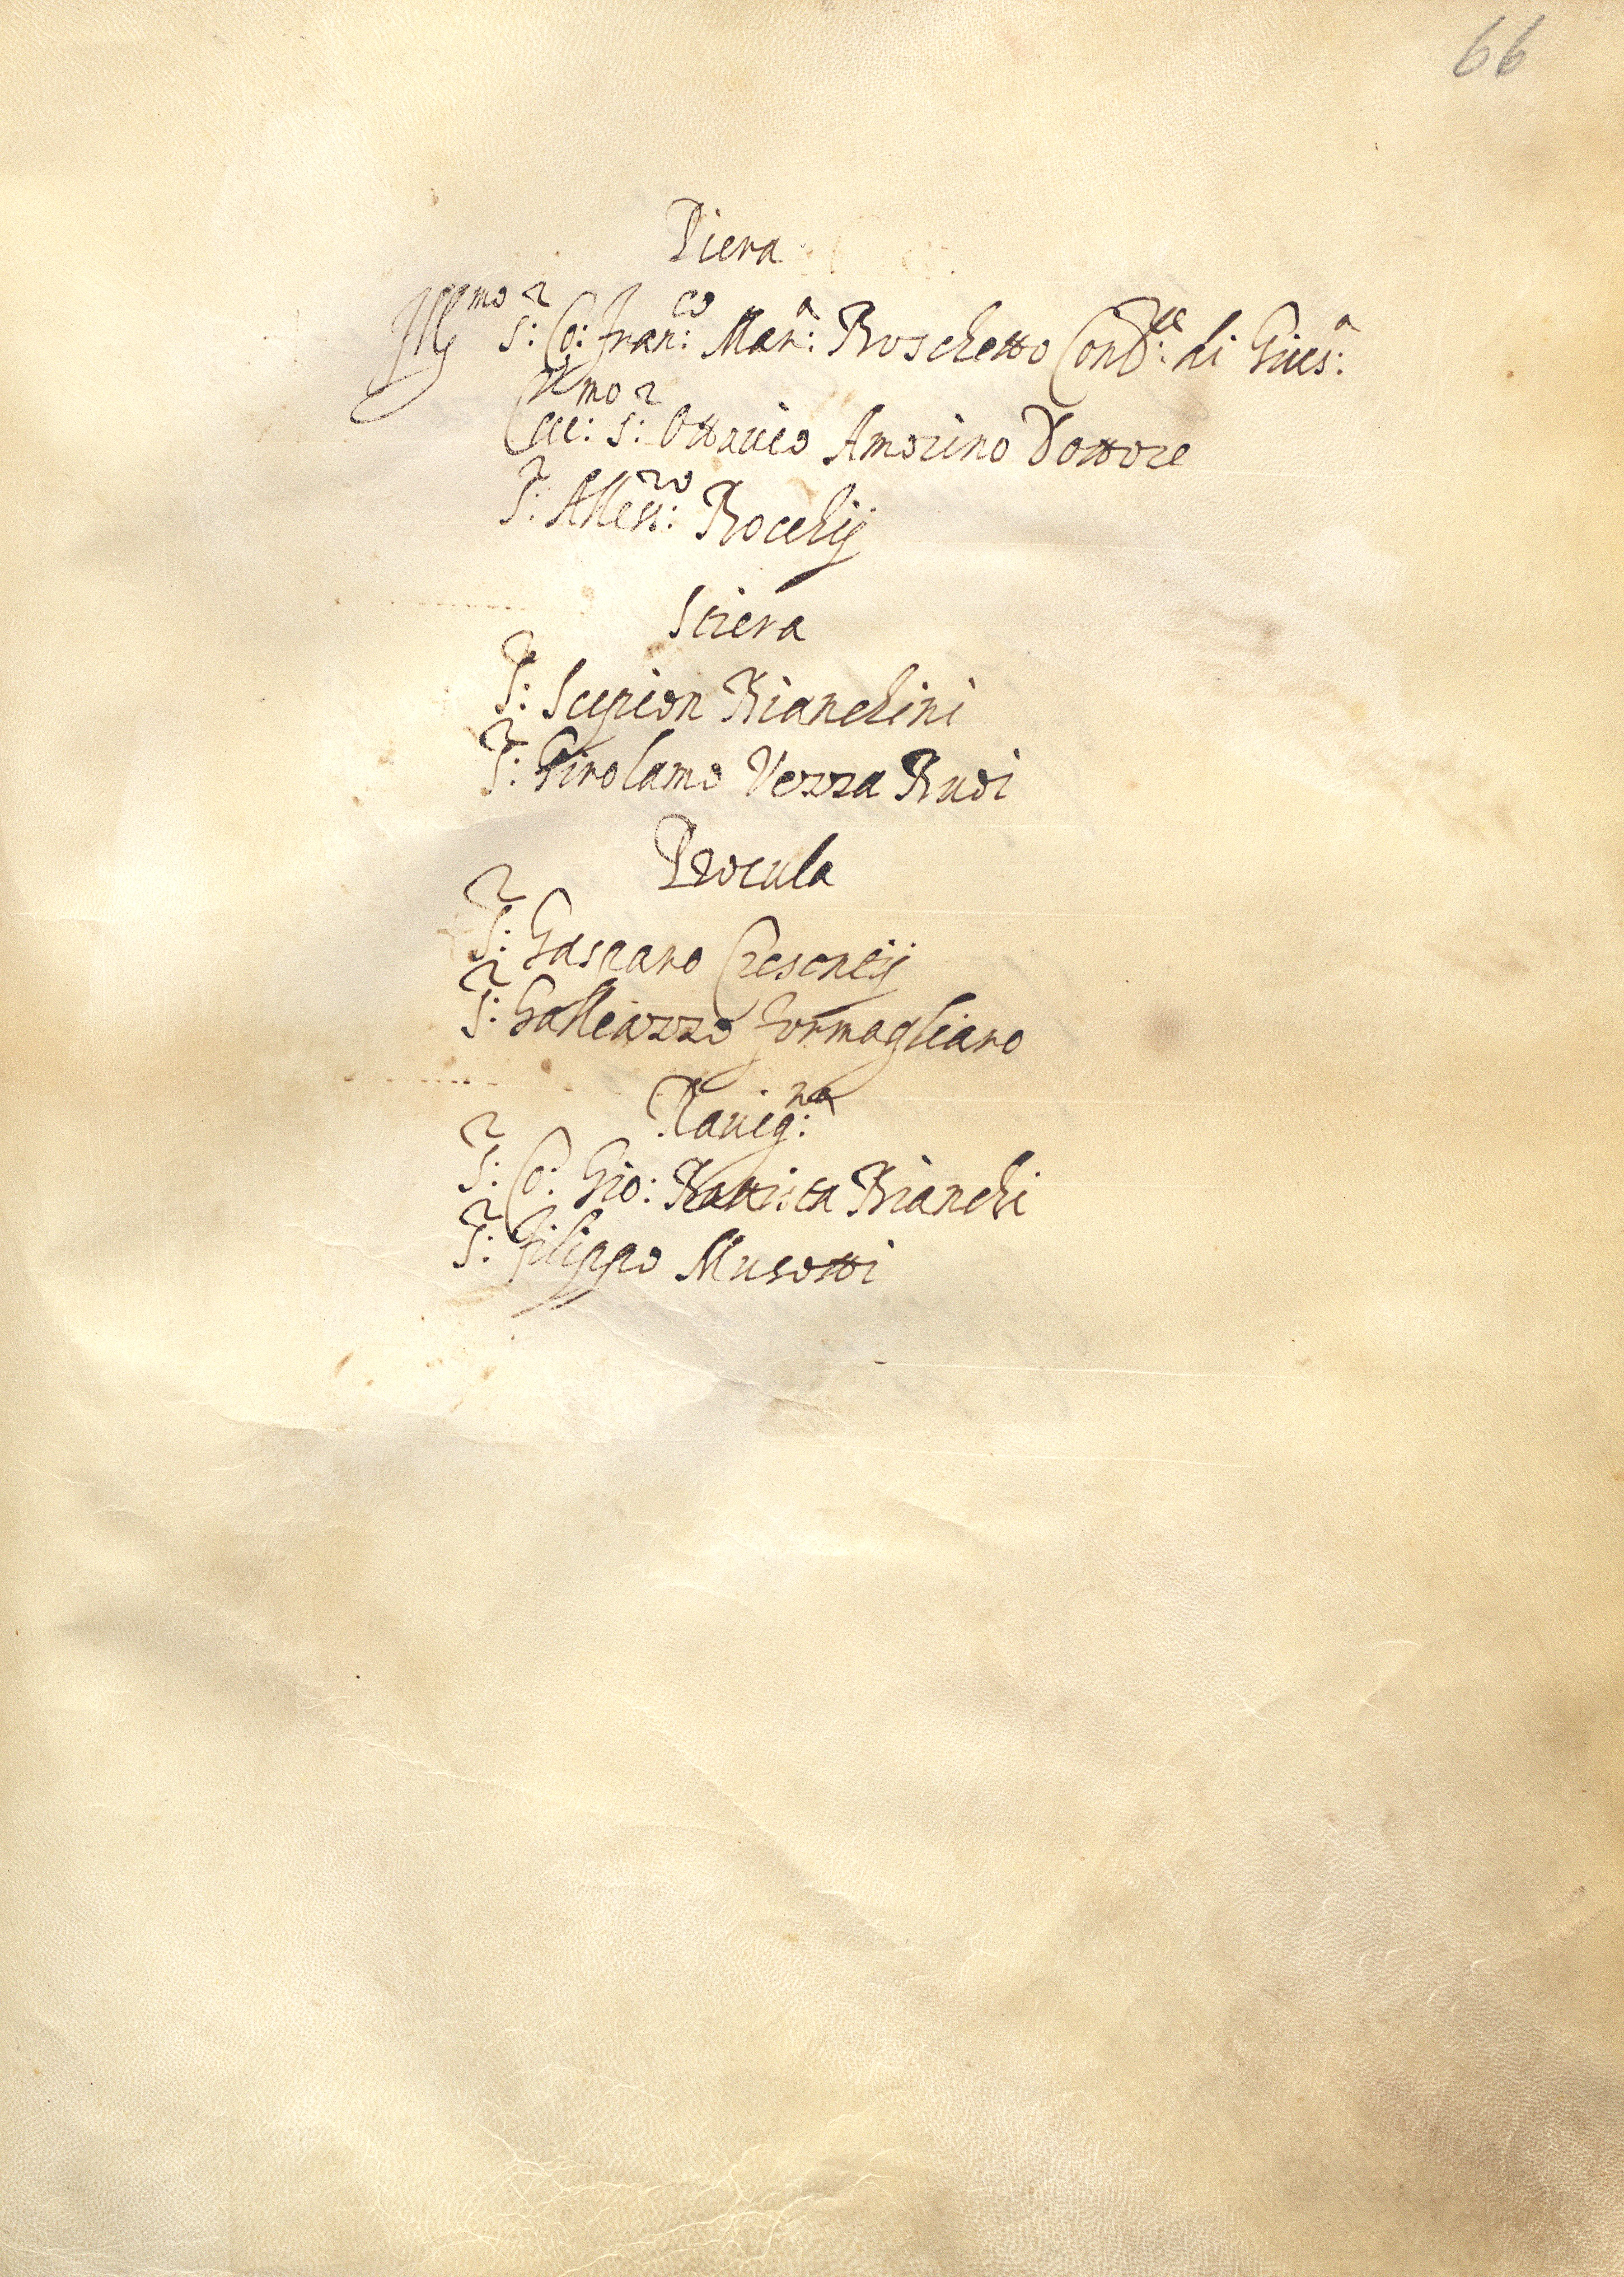 66
Piera
Ill:mo S:r Co: Fran:co Mar:a Boschetto Conf:re di Gius:a
Ecc:mo S:r Ottauio Amorino Dottore
S:r Aless:ro Bocchij
Stiera
S:r Scipion Bianchini
S:r Girolamo Vezza
Procula
S:r Gasparo Cresentij
S:r Galleazzo Formagliaro
Rauig:na
S:r Co: Gio: Battista Bianchi
S:r Filippo Musotti